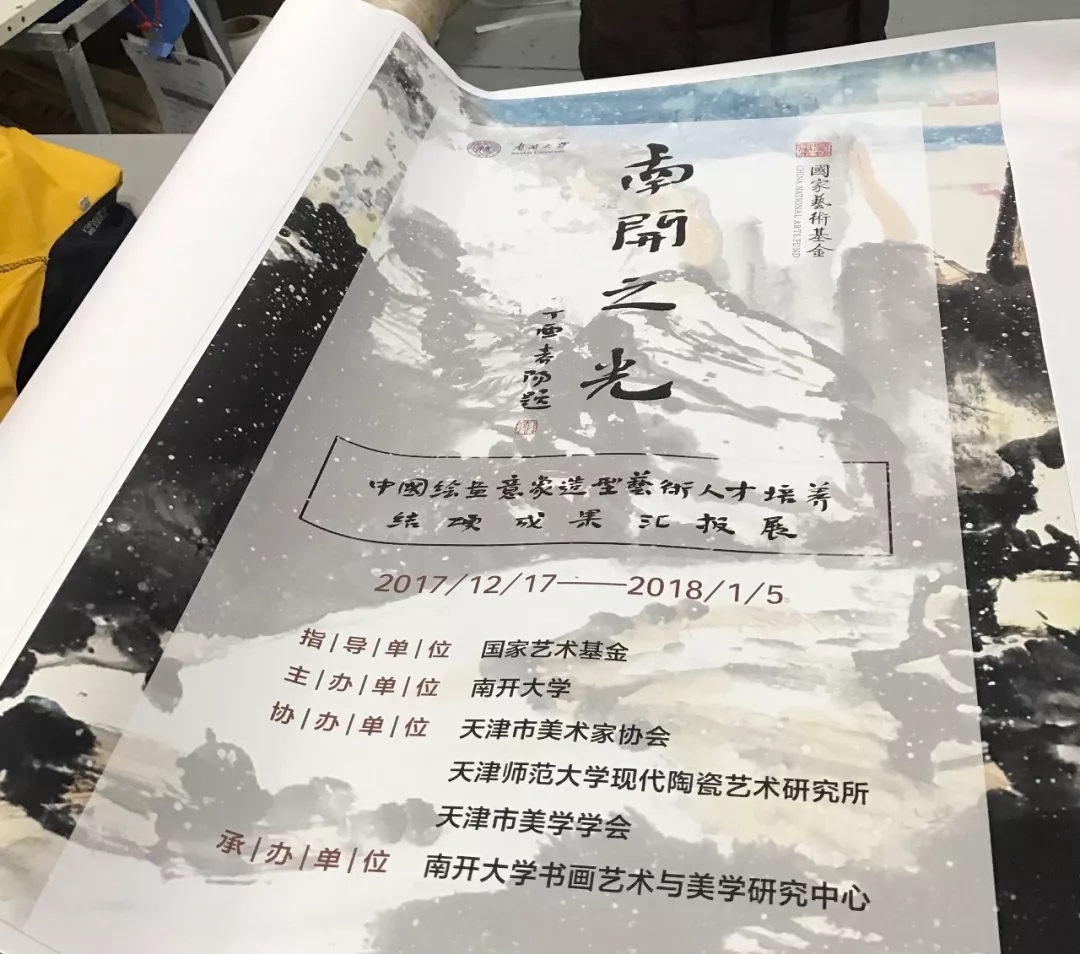 南開大學
Nankai University
國家藝術基金
CHINA NATIONAL ARTS FUND
南開之光
丁酉春阳题
中国绘画意象造型藝術人才培养
结项成果汇报展
2017/12/17——2018/1/5
指|导|单|位 国家艺术基金
主|办|单|位 南开大学
协|办|单|位 天津市美术家协会
天津师范大学现代陶瓷艺术研究所
天津市美学学会
承|办|单|位 南开大学书画艺术与美学研究中心